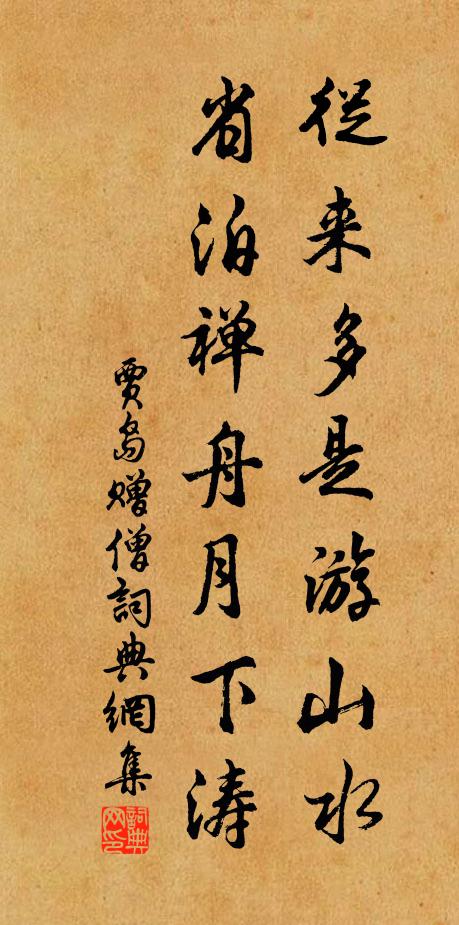 從来多是游山水
省泊禅舟月下涛
賈島赠僧詞典網集
詞典网印